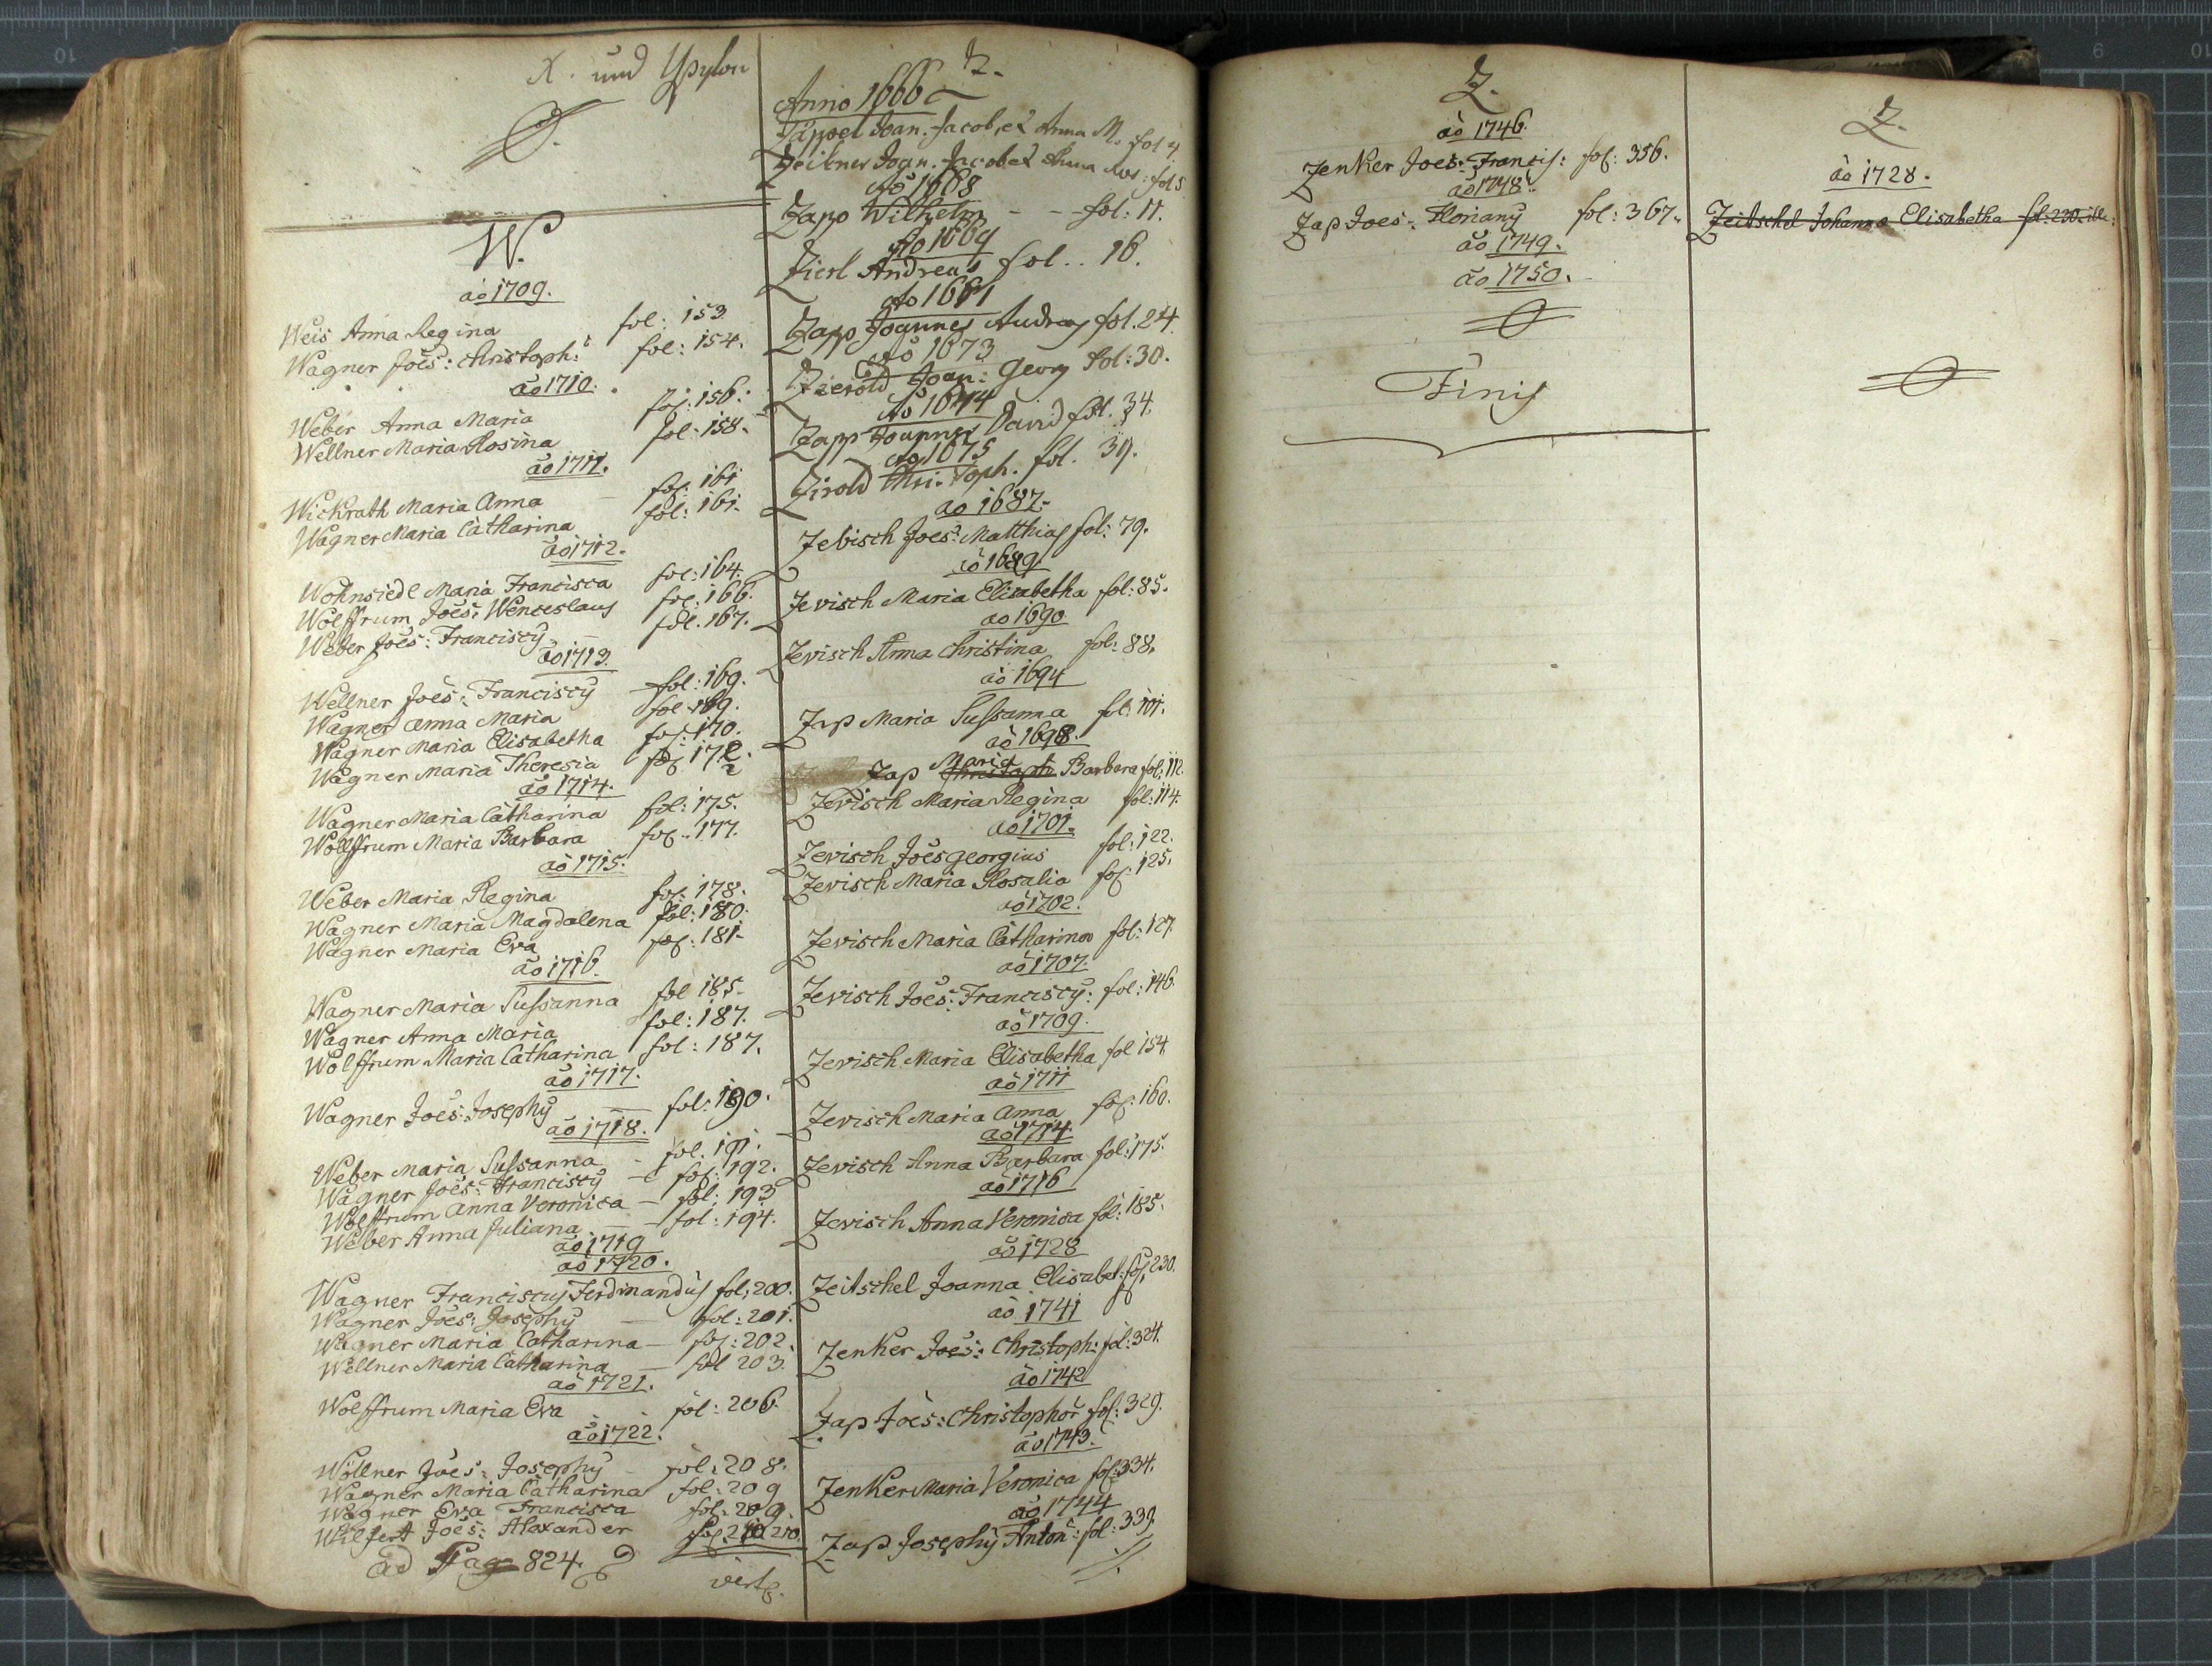 X. und Ypsylon
W.
ão 1709.
Weis Anna Regina fol: 153
Wagner Joẽs: Christoph: fol: 154.
ão 1710.
Weber Anna Maria fol: 156.
Wellner Maria Rosina fol: 158.
ão 1711.
Wickrath Maria Anna fol: 161
Wagner Maria Catharina fol: 161.
ão 1712.
Wohnsiedl Maria Francisca fol: 164.
Wolffrum Joẽs: Wenceslaus fol: 166.
Weber Joẽs: Franciscy fol. 167.
ão 1713.
Wellner Joẽs: Franciscy fol: 169.
Wagner Anna Maria fol 169.
Wagner Maria Elisabetha fol: 170.
Wagner Maria Theresia fol 172
ão 1714.
Wagner Maria Catharina fol: 175.
Wolffrum Maria Barbara fol: 177.
ão 1715.
Weber Maria Regina fol: 178.
Wagner Maria Magdalena fol: 180.
Wagner Maria Eva fol: 181.
ão 1716.
Wagner Maria Sussanna fol 185.
Wagner Anna Maria fol: 187.
Wolffrum Maria Catharina fol: 187.
ão 1717.
Wagner Joẽs: Josephy — fol: 190.
ão 1718.
Weber Maria Sussanna - fol. 191.
Wagner Joẽs: Franciscy - fol: 192.
Wolffrum Anna Veronica — fol: 193
Weber Anna Juliana — fol: 194.
ão 1719
ão 1720.
Wagner Franciscus Ferdinandus fol: 200.
Wagner Joẽs: Josephy — fol: 201.
Wagner Maria Catharina — fol: 202.
Wellner Maria Catharina — fol 203.
ão 1721.
Wolffrum Maria Eva fol: 206.
ão 1722.
Wöllner Joẽs: Josephy fol: 208.
Wagner Maria Catharina fol: 209
Wagner Eva Francisca fol: 209.
Wilfert Joẽs: Alexander fol 210
ad Pag 824.
verte.
Z.
Anno 1666
Joan. Jacob, et Anna M. fol 4
Zeitner Joan. Jacob et Anna Ros: fol 5
Aõ 1668
Zapp Wilhelm - - fol: 11.
Aõ 1669
Zierl Andreas fol.. 16.
Ao 1671
Zapp Joannes Andreas fol. 24.
Aõ 1673
Zierold Joan: Georg fol: 30.
Aõ 1674
Zapp Joannes David fol. 34.
Ao 1675
Zirold Christoph. fol. 39.
ao 1687.
Zebisch Joes: Matthias fol: 79.
ão 1689
Zevisch Maria Elisabetha fol: 85.
ao 1690
Zevisch Anna Christina fol: 88.
ão 1694
Zap Maria Sussanna fol: 101.
ão 1698.
Zap Maria Christoph Barbara fol: 112.
Zevisch Maria Regina fol: 114.
ao 1701.
Zevisch Joẽs Georgius fol: 122.
Zevisch Maria Rosalia fol: 125.
ão 1702.
Zevisch Maria Catharina fol: 127.
ão 1707.
Zevisch Joẽs: Franciscy: fol: 146.
ão 1709.
Zevisch Maria Elisabetha fol 154.
ão 1711
Zevisch Maria Anna fol: 160.
ão 1714.
Zevisch Anna Barbara fol: 175.
ão 1716
Zevisch Anna Veronica fol: 185.
ão 1728
Zeitschel Joanna Elisabet: fol: 230.
ão 1741
Zenker Joẽs: Christoph: fol: 324.
ão 1742
Zap Joẽs: Christophor fol: 329.
ão 1743.
Zenker Maria Veronica fol: 334.
ão 1744
Zap Josephy Anton: fol: 339.
Z.
ão 1746.
Zenker Joes: Francis: fol: 356.
ão 1748
Zap Joes: Floriany fol: 367.
ão 1749.
ão 1750.
Finis
Z.
ão 1728.
Zeitschel Johanna Elisabetha fol: 230